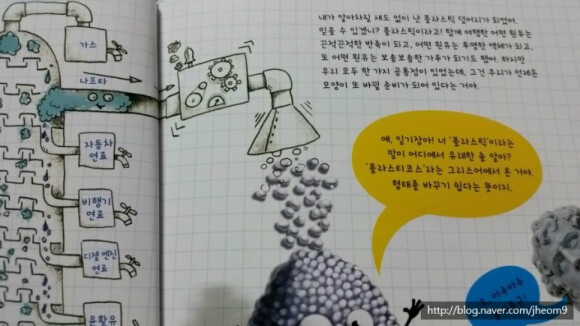 가스
나프타
자동차
연료
비행기
연료
디젤 엔진
연료
윤활유
내가 알아차릴 새도 없이 난 플라스틱 덩어리가 되었어.
믿을 수 있겠니? 플라스틱이라고! 함께 여행한 어떤 원유는
끈적끈적한 반죽이 되고, 어떤 원유는 투명한 액체가 되고,
또 어떤 원유는 보송보송한 가루가 되기도 했어. 하지만
우리 모두 한 가지 공통점이 있었는데, 그건 우리가 언제든
모양이 또 바뀔 준비가 되어 있다는 거야.
얘, 일기장아! 너 '플라스틱'이라는
말이 어디에서 유래한 줄 알아?
'플라스티코스'라는 그리스어에서 온 거야.
형태를 바꾸기 쉽다는 뜻이지.
아주아주
http://blog.naver.com/jheom9